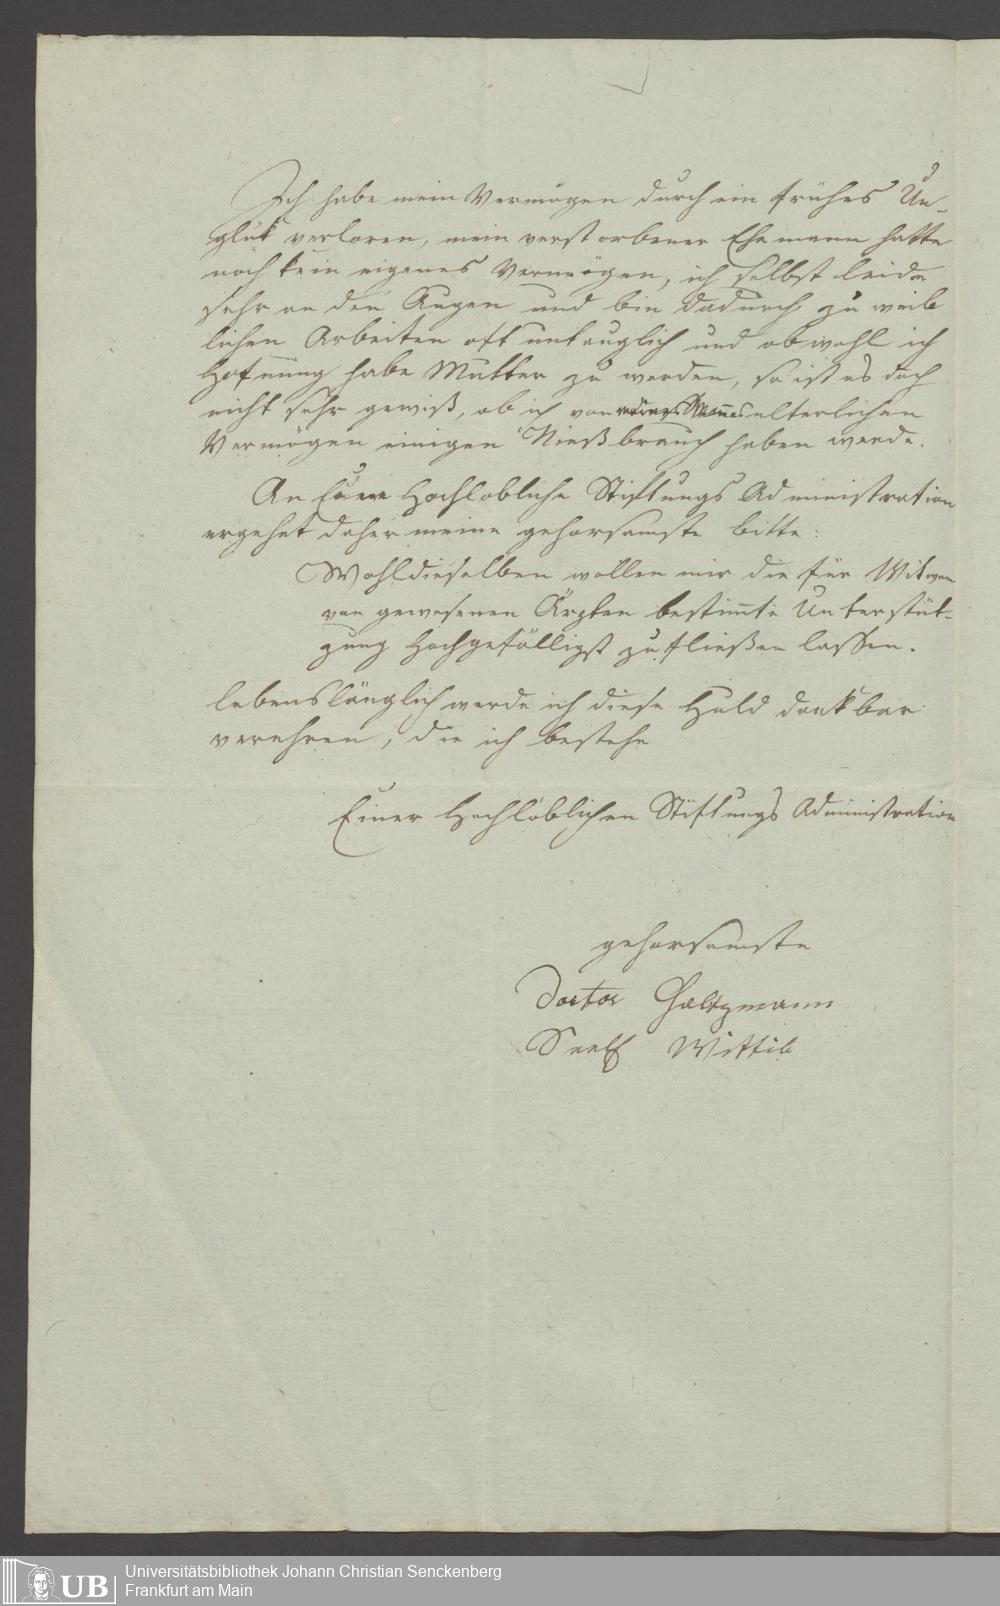 Ich habe mein Vermögen durch ein frühes Un-
glük verloren, mein verstorbener Ehemann hatte
noch kein eigenes Vermögen, ich selbst leide
sehr an den Augen und bin dadurch zu weib
lichen Arbeiten oft untauglich und obwohl ich
Hofnung habe Mutter zu werden, so ist es doch
nicht sehr gewiß, ob ich von meines Mannes elterlichen
Vermögen einigen Nießbrauch haben werde.
An Eine Hochlobliche Stiftungs Administration
ergehet daher meine gehorsamste bitte:
Wohldieselben wollen mir die für Witwen
von gewesenen Ärzten bestimte Unterstüt-
zung Hochgefälligst zufließen lassen.
lebenslänglich werde ich diese Huld dankbar
verehren, die ich bestehe
Einer Hochlöblichen Stiftungs Administration
gehorsamste
Doctor
Seel Wittib
Universitätsbibliothek Johann Christian Senckenberg
Frankfurt am Main
UB